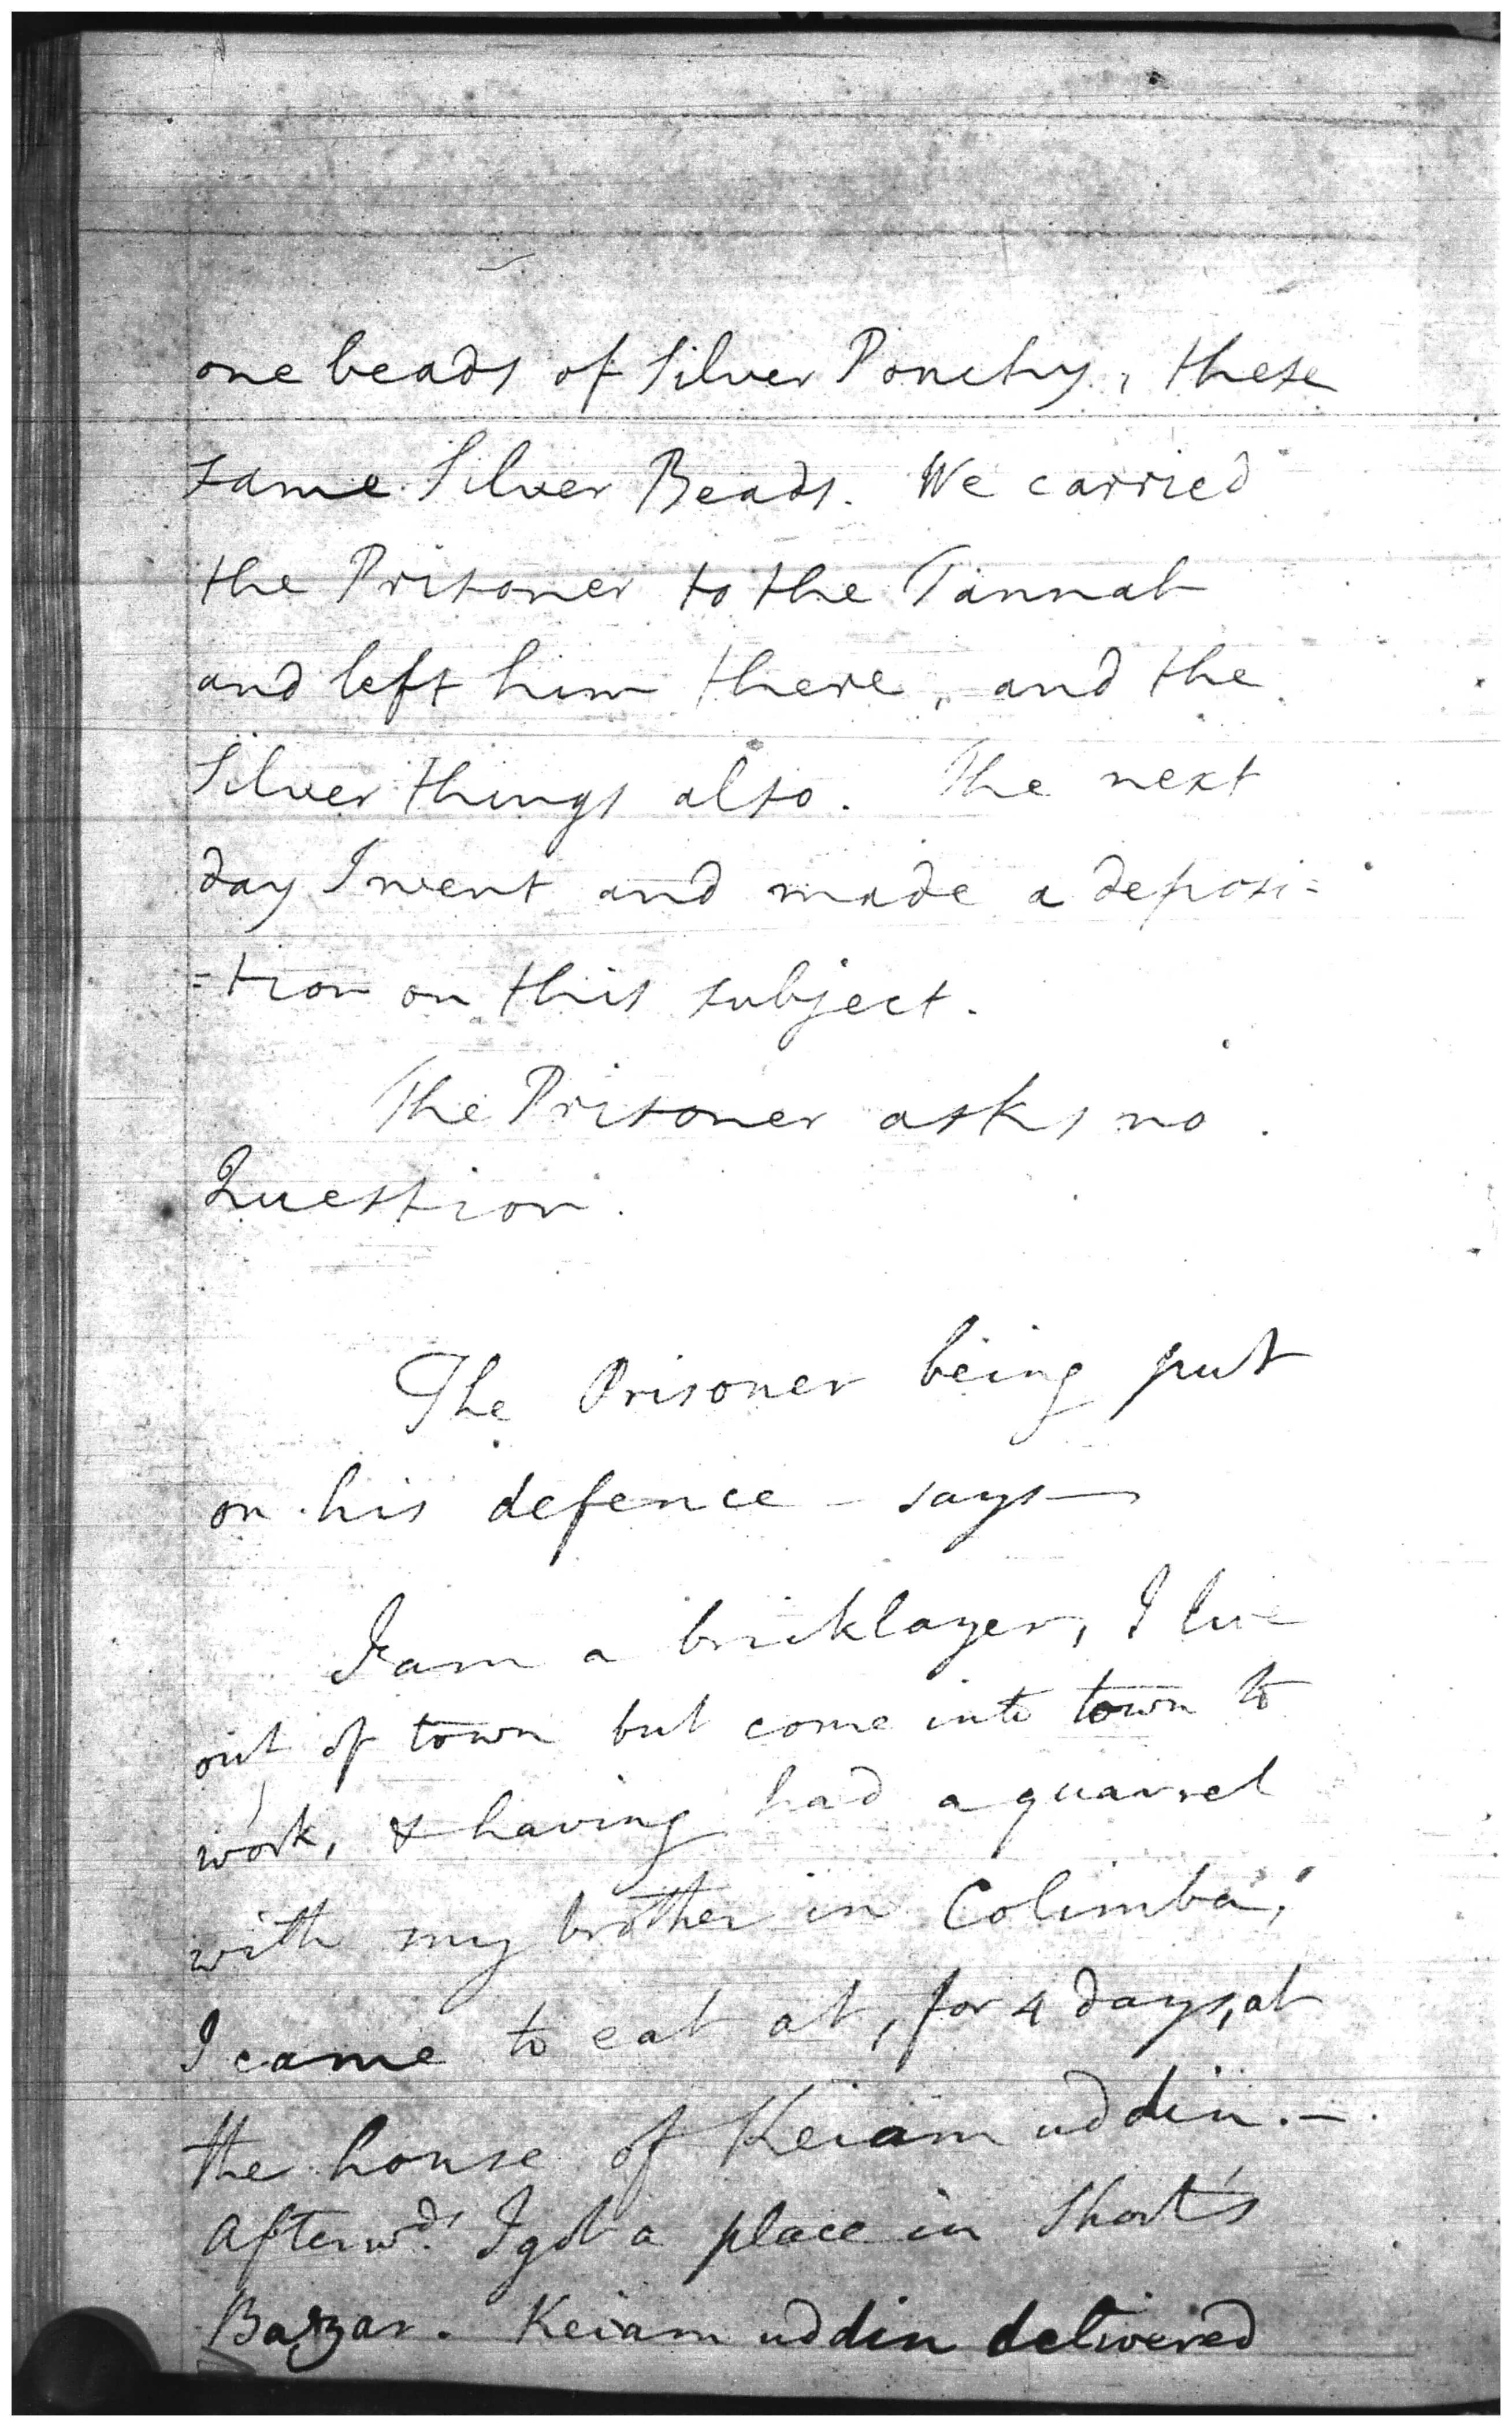 one beads of Silver Ponchy, these
same Silver Beads. We carried
the Prisoner to the Tannah
and left him there, and the
Silver things also. The next
day I went and made a deposi=
=tion on this subject.
The Prisoner asks no
Question.
The Prisoner being put
on his defence – says —
I am a bricklayer, I live
out of town but come into town to
work, & having had a quarrel
with my brother in Colimba,
I came to eat at, for 4 days, at
the house of Keiam uddin. –
Afterwds. I got a place in Short's
Bazar. Keiam uddin delivered